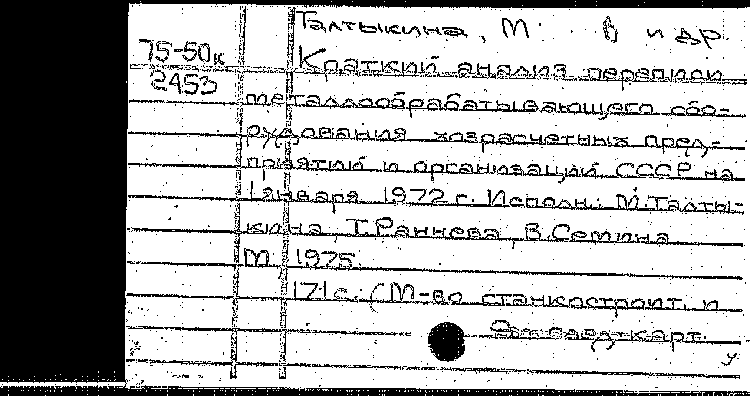 Талтыкина, М. В. и др.
75-50к
2453
Краткий анализ переписи
металлообрабатывающего обо-
рудования хозрасчетных пред-
приятий и организаций СССР на
1 января 1972 г. Исполн.: М. Талты-
кина, Т. Раннева, В. Семина
М. 1975.
171 с. (М-во станкостроит. и
См. след. карт.